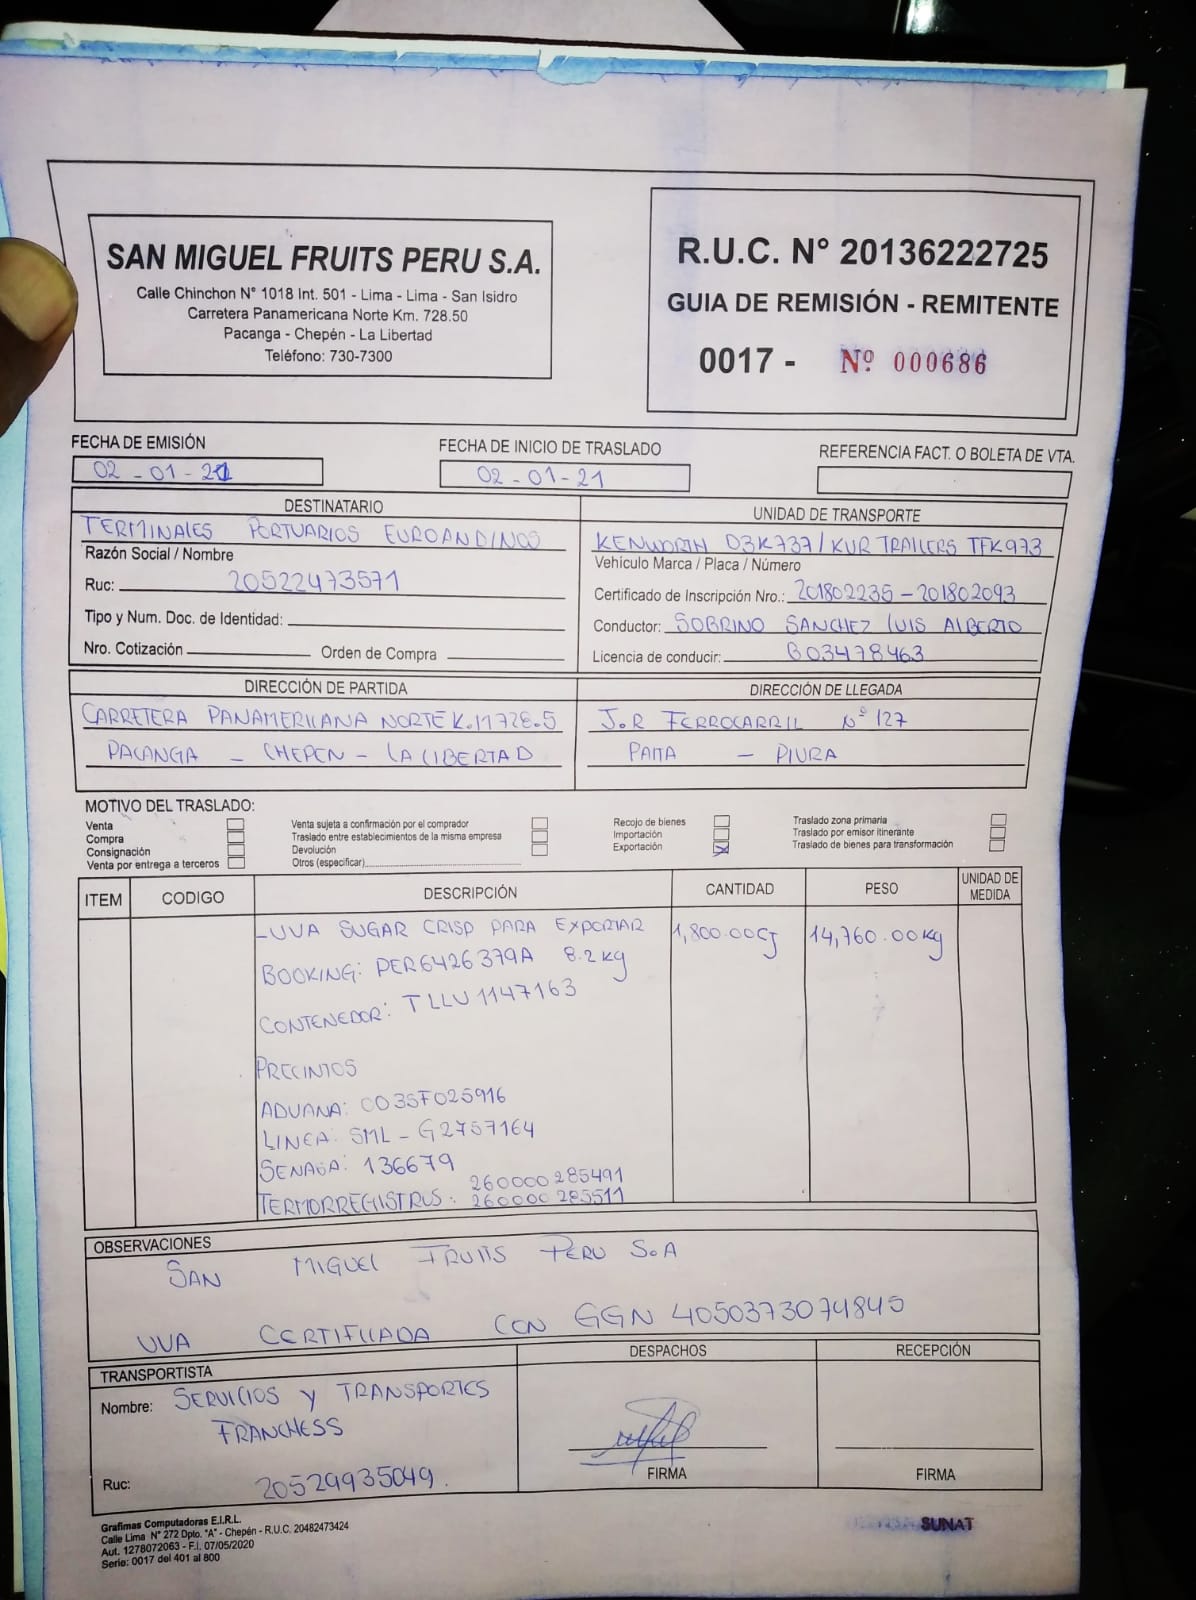 SAN MIGUEL FRUITS PERU S.A.
Calle Chinchon N° 1018 Int. 501 - Lima - Lima - San Isidro
Carretera Panamericana Norte Km. 728.50
Pacanga - Chepén - La Libertad
Teléfono: 730-7300
R.U.C. N° 20136222725
GUIA DE REMISIÓN - REMITENTE
0017 - Nº 000686
FECHA DE EMISIÓN
02 - 01 - 21
FECHA DE INICIO DE TRASLADO
02 - 01 - 21
REFERENCIA FACT. O BOLETA DE VTA.
DESTINATARIO
TERMINALES PORTUARIOS EUROANDINOS
Razón Social / Nombre
Ruc: 20522473571
Tipo y Num. Doc. de Identidad:
Nro. Cotización Orden de Compra
UNIDAD DE TRANSPORTE
KENWORTH D3K737/KUR TRAILERS TFK973
Vehículo Marca / Placa / Número
Certificado de Inscripción Nro.: 201802235 - 201802093
Conductor: SOBRINO SANCHEZ LUIS ALBERTO
Licencia de conducir: B03478463
DIRECCIÓN DE PARTIDA
CARRETERA PANAMERICANA NORTE K.M 728.5
PACANGA - CHEPEN - LA LIBERTAD
DIRECCIÓN DE LLEGADA
J.R FERROCARRIL Nº 127
PAITA - PIURA
MOTIVO DEL TRASLADO:
Venta
Compra
Consignación
Venta por entrega a terceros
Venta sujeta a confirmación por el comprador
Traslado entre establecimientos de la misma empresa
Devolución
Otros (especificar)
Recojo de bienes
Importación
Exportación X
Traslado zona primaria
Traslado por emisor itinerante
Traslado de bienes para transformación
ITEM CODIGO DESCRIPCIÓN CANTIDAD PESO UNIDAD DE MEDIDA
-UVA SUGAR CRISP PARA EXPORTAR 1,800.00CJ 14,760.00Kg
BOOKING: PER6426379A 8.2 Kg
CONTENEDOR: TLLU 1147163
PRECINTOS
ADUANA: 0035F025916
LINEA: SML - G2757164
SENASA: 136679
260000285491
TERMORREGISTROS: 260000285511
OBSERVACIONES
SAN MIGUEL FRUITS PERU S.A
UVA CERTIFICADA CON GGN 4050373074845
TRANSPORTISTA
Nombre: SERVICIOS Y TRANSPORTES
FRANCHESS
Ruc: 20529935049.
DESPACHOS
FIRMA
RECEPCIÓN
FIRMA
Grafimas Computadoras E.I.R.L.
Calle Lima N° 272 Dpto. "A" - Chepén - R.U.C. 20482473424
Aut. 1278072063 - F.I. 07/05/2020
Serie: 0017 del 401 al 800
SUNAT